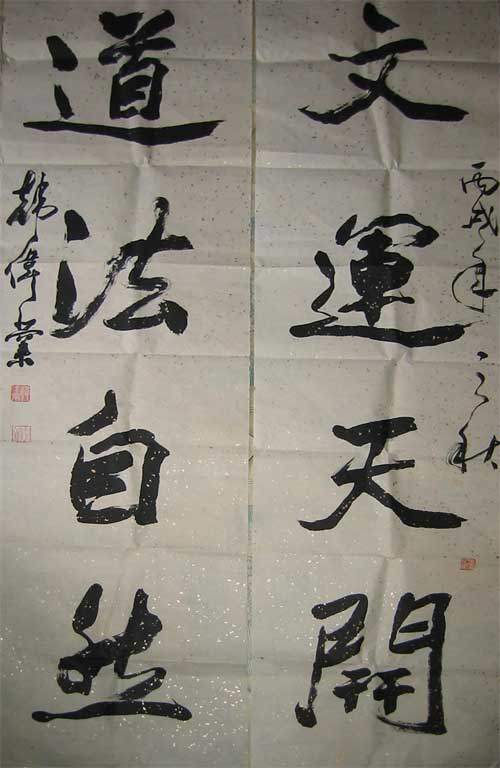 丙戌年之秋
文運天開
道法自然
韩偉業